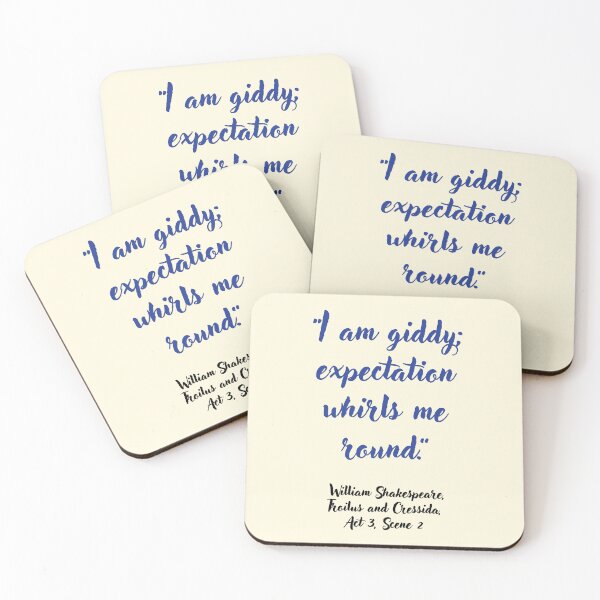 "I am giddy;
expectation
whirls me
"I am giddy;
expectation
whirls me
round."
"I am giddy;
expectation
whirls me
round."
William
Troilus and
Act 3,
"I am giddy;
expectation
whirls me
round."
William Shakespeare,
Troilus and Cressida,
Act 3, Scene 2